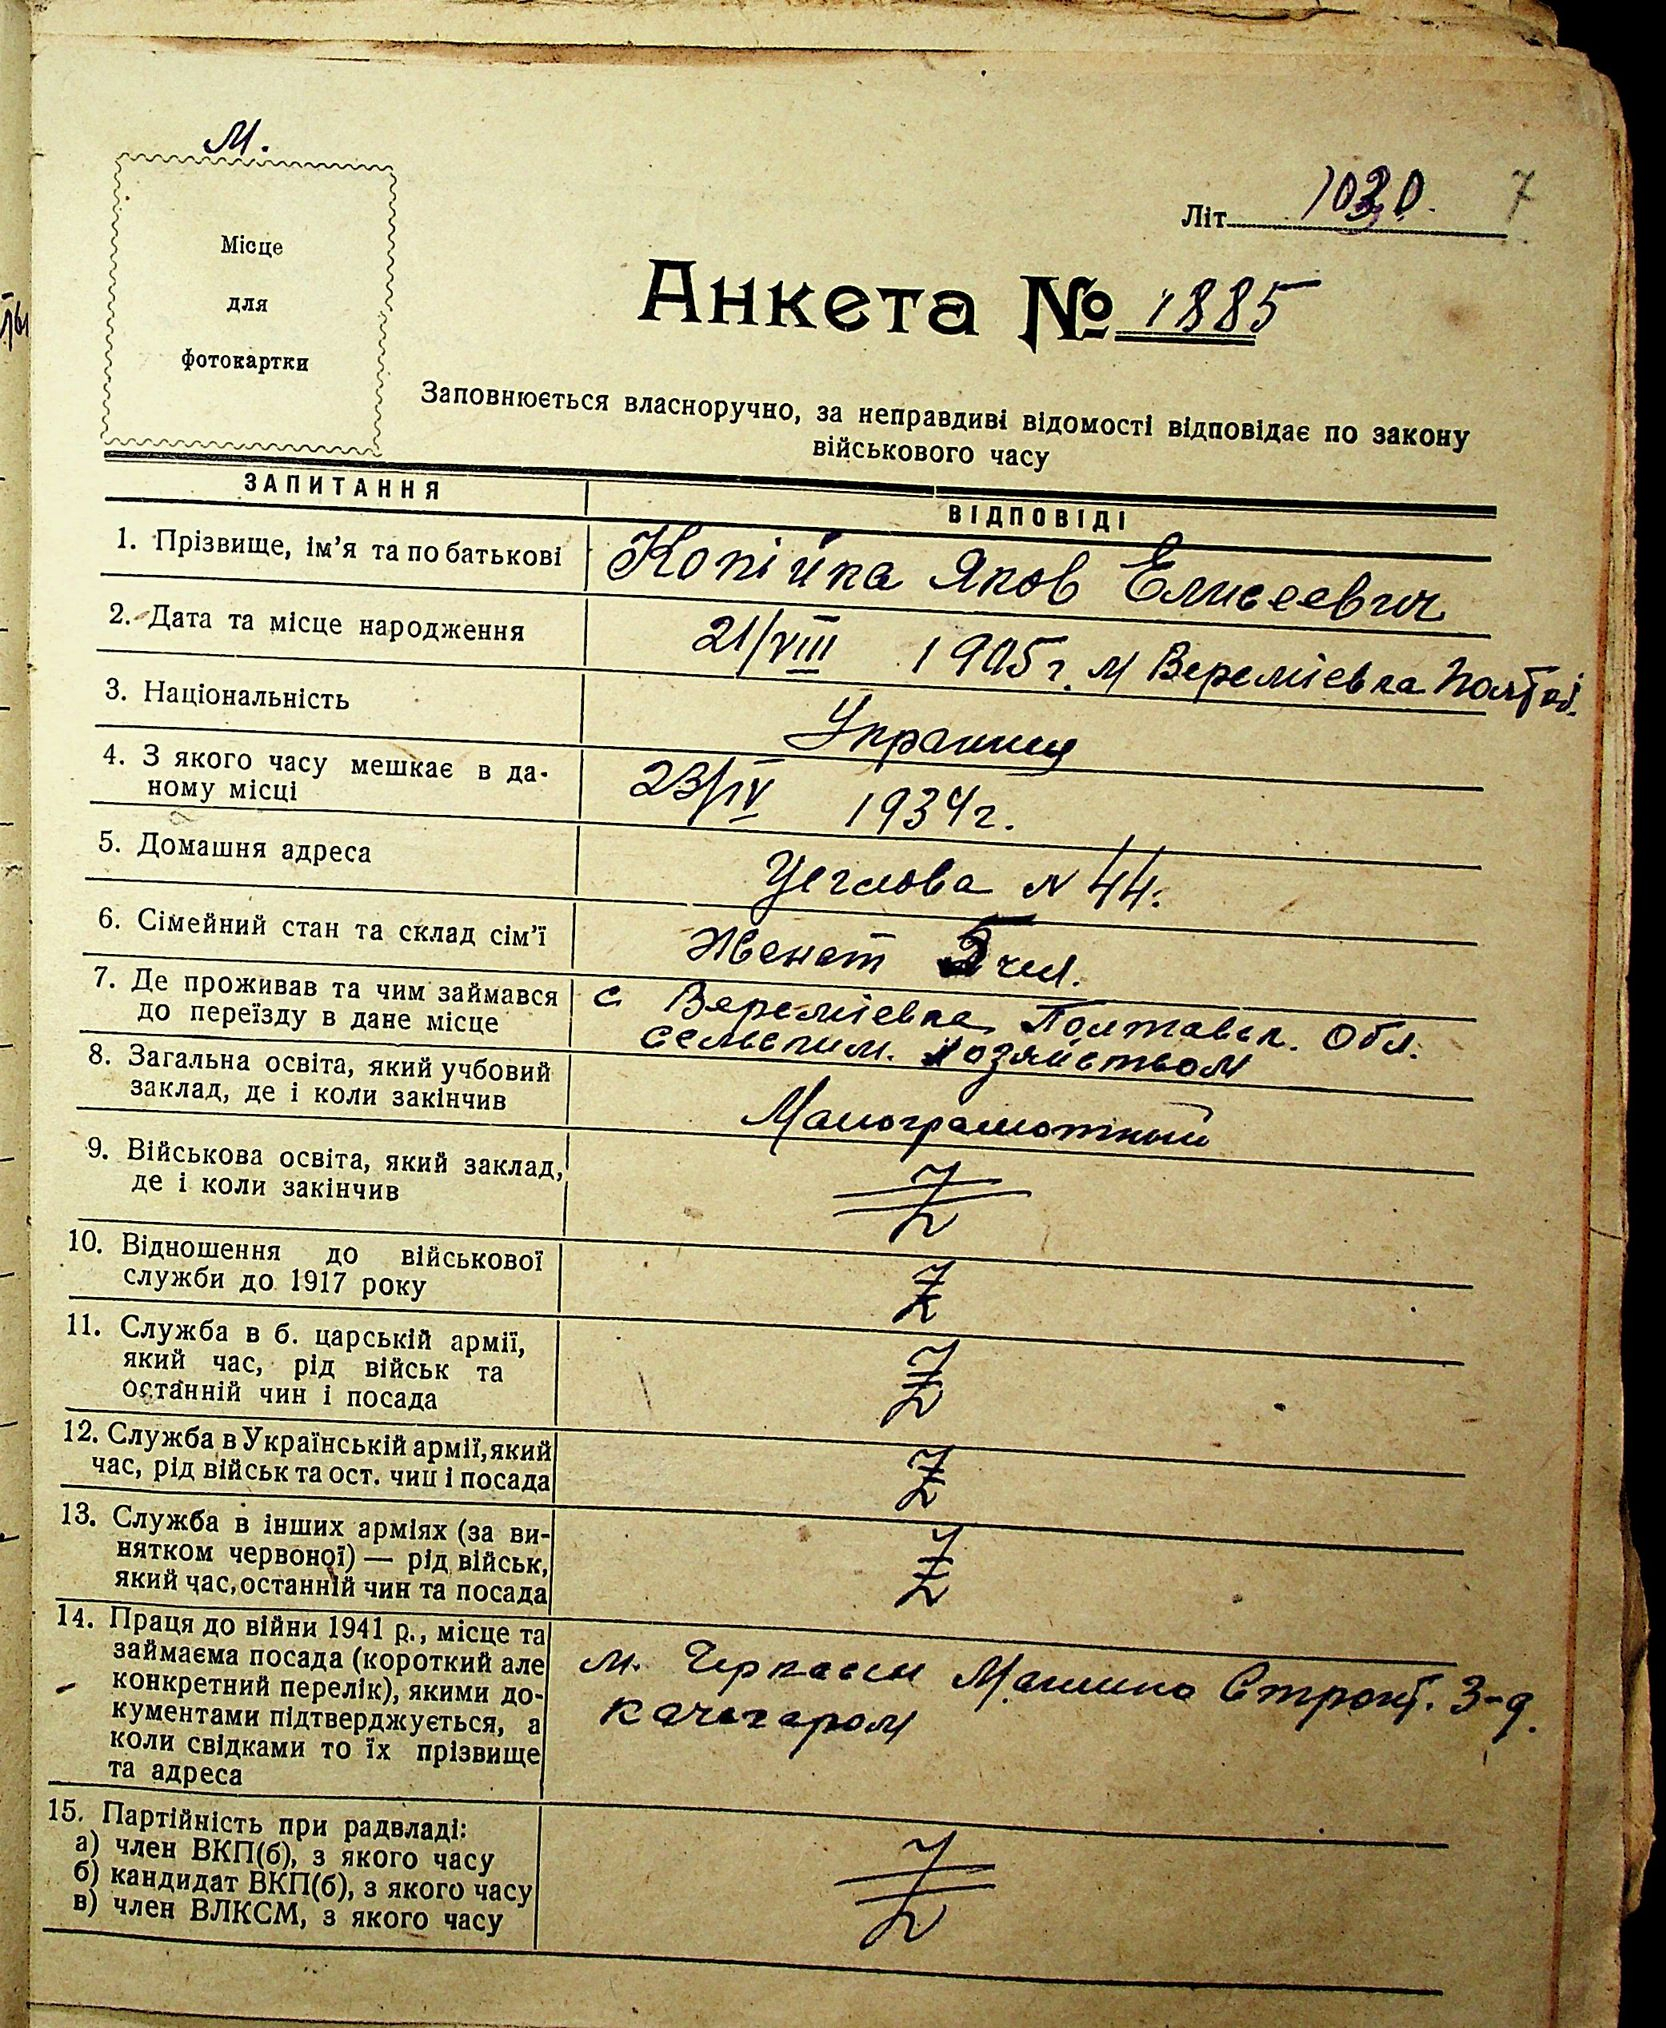 м.
Місце
для
фотокартки
Літ 1030. 7
Анкета № 1885
Заповнюється власноручно, за неправдиві відомості відповідає по закону
військового часу
ЗАПИТАННЯ
ВІДПОВІДІ
1. Прізвище, ім'я та по батькові
Копійка Яков Елисеевич
2. Дата та місце народження
21/VIII 1905 г. м Веремієвка Полтав.
3. Національність
Украинец
4. З якого часу мешкає в да-
ному місці
23/IV 1934 г.
5. Домашня адреса
Цеглова N 44.
6. Сімейний стан та склад сім'ї
Женат 5 чел.
7. Де проживав та чим займався
до переїзду в дане місце
с Веремієвка Полтавск. Обл.
сельским. хозяйством
8. Загальна освіта, який учбовий
заклад, де і коли закінчив
Малограмотный
9. Військова освіта, який заклад,
де і коли закінчив
Z
10. Відношення до військової
служби до 1917 року
Z
11. Служба в б. царській армії,
який час, рід військ та
останній чин і посада
Z
12. Служба в Українській армії, який
час, рід військ та ост. чин і посада
Z
13. Служба в інших арміях (за ви-
нятком червоної) — рід військ,
який час, останній чин та посада
Z
14. Праця до війни 1941 р., місце та
займаєма посада (короткий але
конкретний перелік), якими до-
кументами підтверджується, а
коли свідками то їх прізвище
та адреса
м. Черкассы Машино Строит. З-д.
качегаром
15. Партійність при радвладі:
а) член ВКП(б), з якого часу
б) кандидат ВКП(б), з якого часу
в) член ВЛКСМ, з якого часу
Z